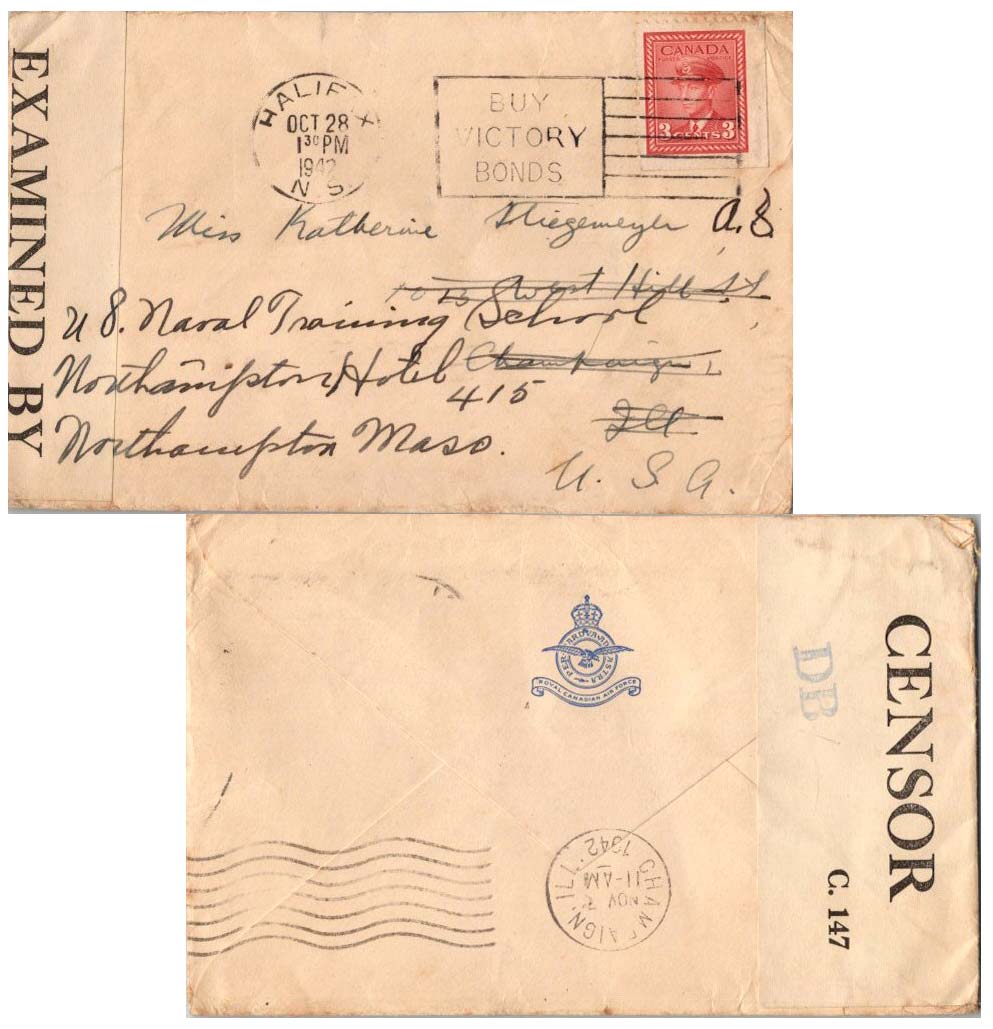 EXAMINED BY
HALIFAX
OCT 28
1 30 PM
1942
N S
BUY
VICTORY
BONDS
CANADA
3 CENTS 3
Miss Katherine Stiegemeyer A.S.
West Hill St
U S. Naval Training School
Northampton Hotel Champaign
415
Ill
Northampton Mass.
U. S. A.
PER ARDUA AD ASTRA
ROYAL CANADIAN AIR FORCE
CENSOR
DB
C. 147
CHAMPAIGN, ILL.
NOV
11-AM
1942